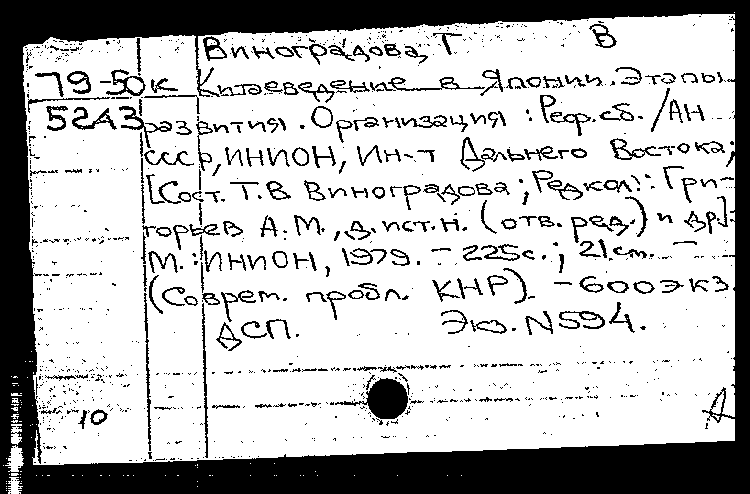 Виноградова, Т В
79-50к Китаеведение в Японии. Этапы
5243 развития. Организация : Реф.сб. /АН
СССР, ИНИОН, Ин-т Дальнего Востока;
[Сост. Т.В. Виноградова; Редкол.: Гри-
горьев А.М., д.ист.н. (отв. ред.) и др.].-
М. : ИНИОН, 1979. - 225с.; 21см. -
(Соврем. пробл. КНР). - 600экз.
ДСП. Экз. N594.
10